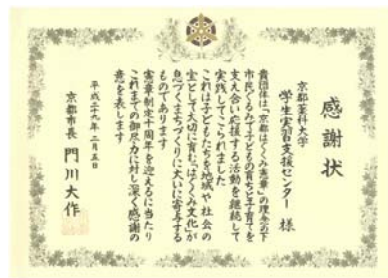 感謝状
京都薬科大学
学生実習支援センター 様
貴団体は「京都はぐくみ憲章」の理念の下
市民ぐるみで子どもの育ちと子育てを
支え合い応援する活動を継続して
実践してこられました
これは子どもたちを地域や社会の
宝として大切に育む「はぐくみ文化」が
息づくまちづくりに大いに寄与する
ものであります
憲章制定十周年を迎えるに当たり
これまでの御尽力に対し深く感謝の
意を表します
平成二十九年二月五日
京都市長 門川大作